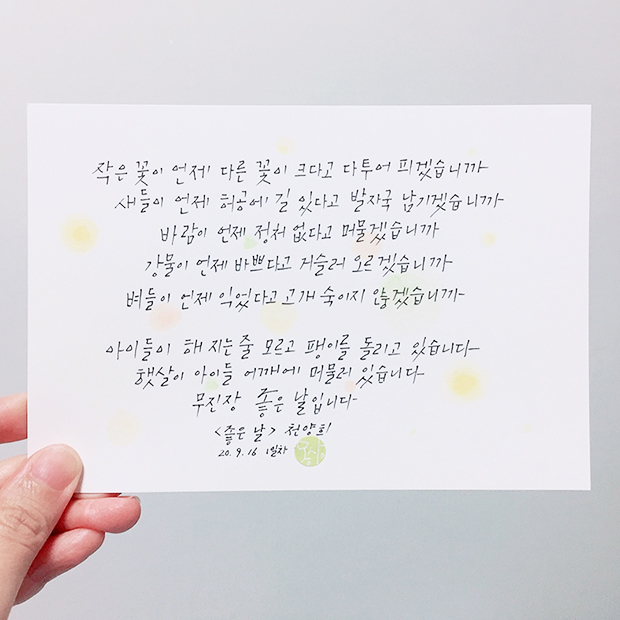 작은 꽃이 언제 다른 꽃이 크다고 다투어 피겠습니까
새들이 언제 허공에 길 있다고 발자국 남기겠습니까
바람이 언제 정처 없다고 머물겠습니까
강물이 언제 바쁘다고 거슬러 오르겠습니까
벼들이 언제 익었다고 고개 숙이지 않겠습니까
아이들이 해 지는줄 모르고 팽이를 돌리고 있습니다
햇살이 아이들 어깨에 머물러 있습니다
무진장 좋은 날입니다
<좋은 날> 천양희
20.9.16 1일차